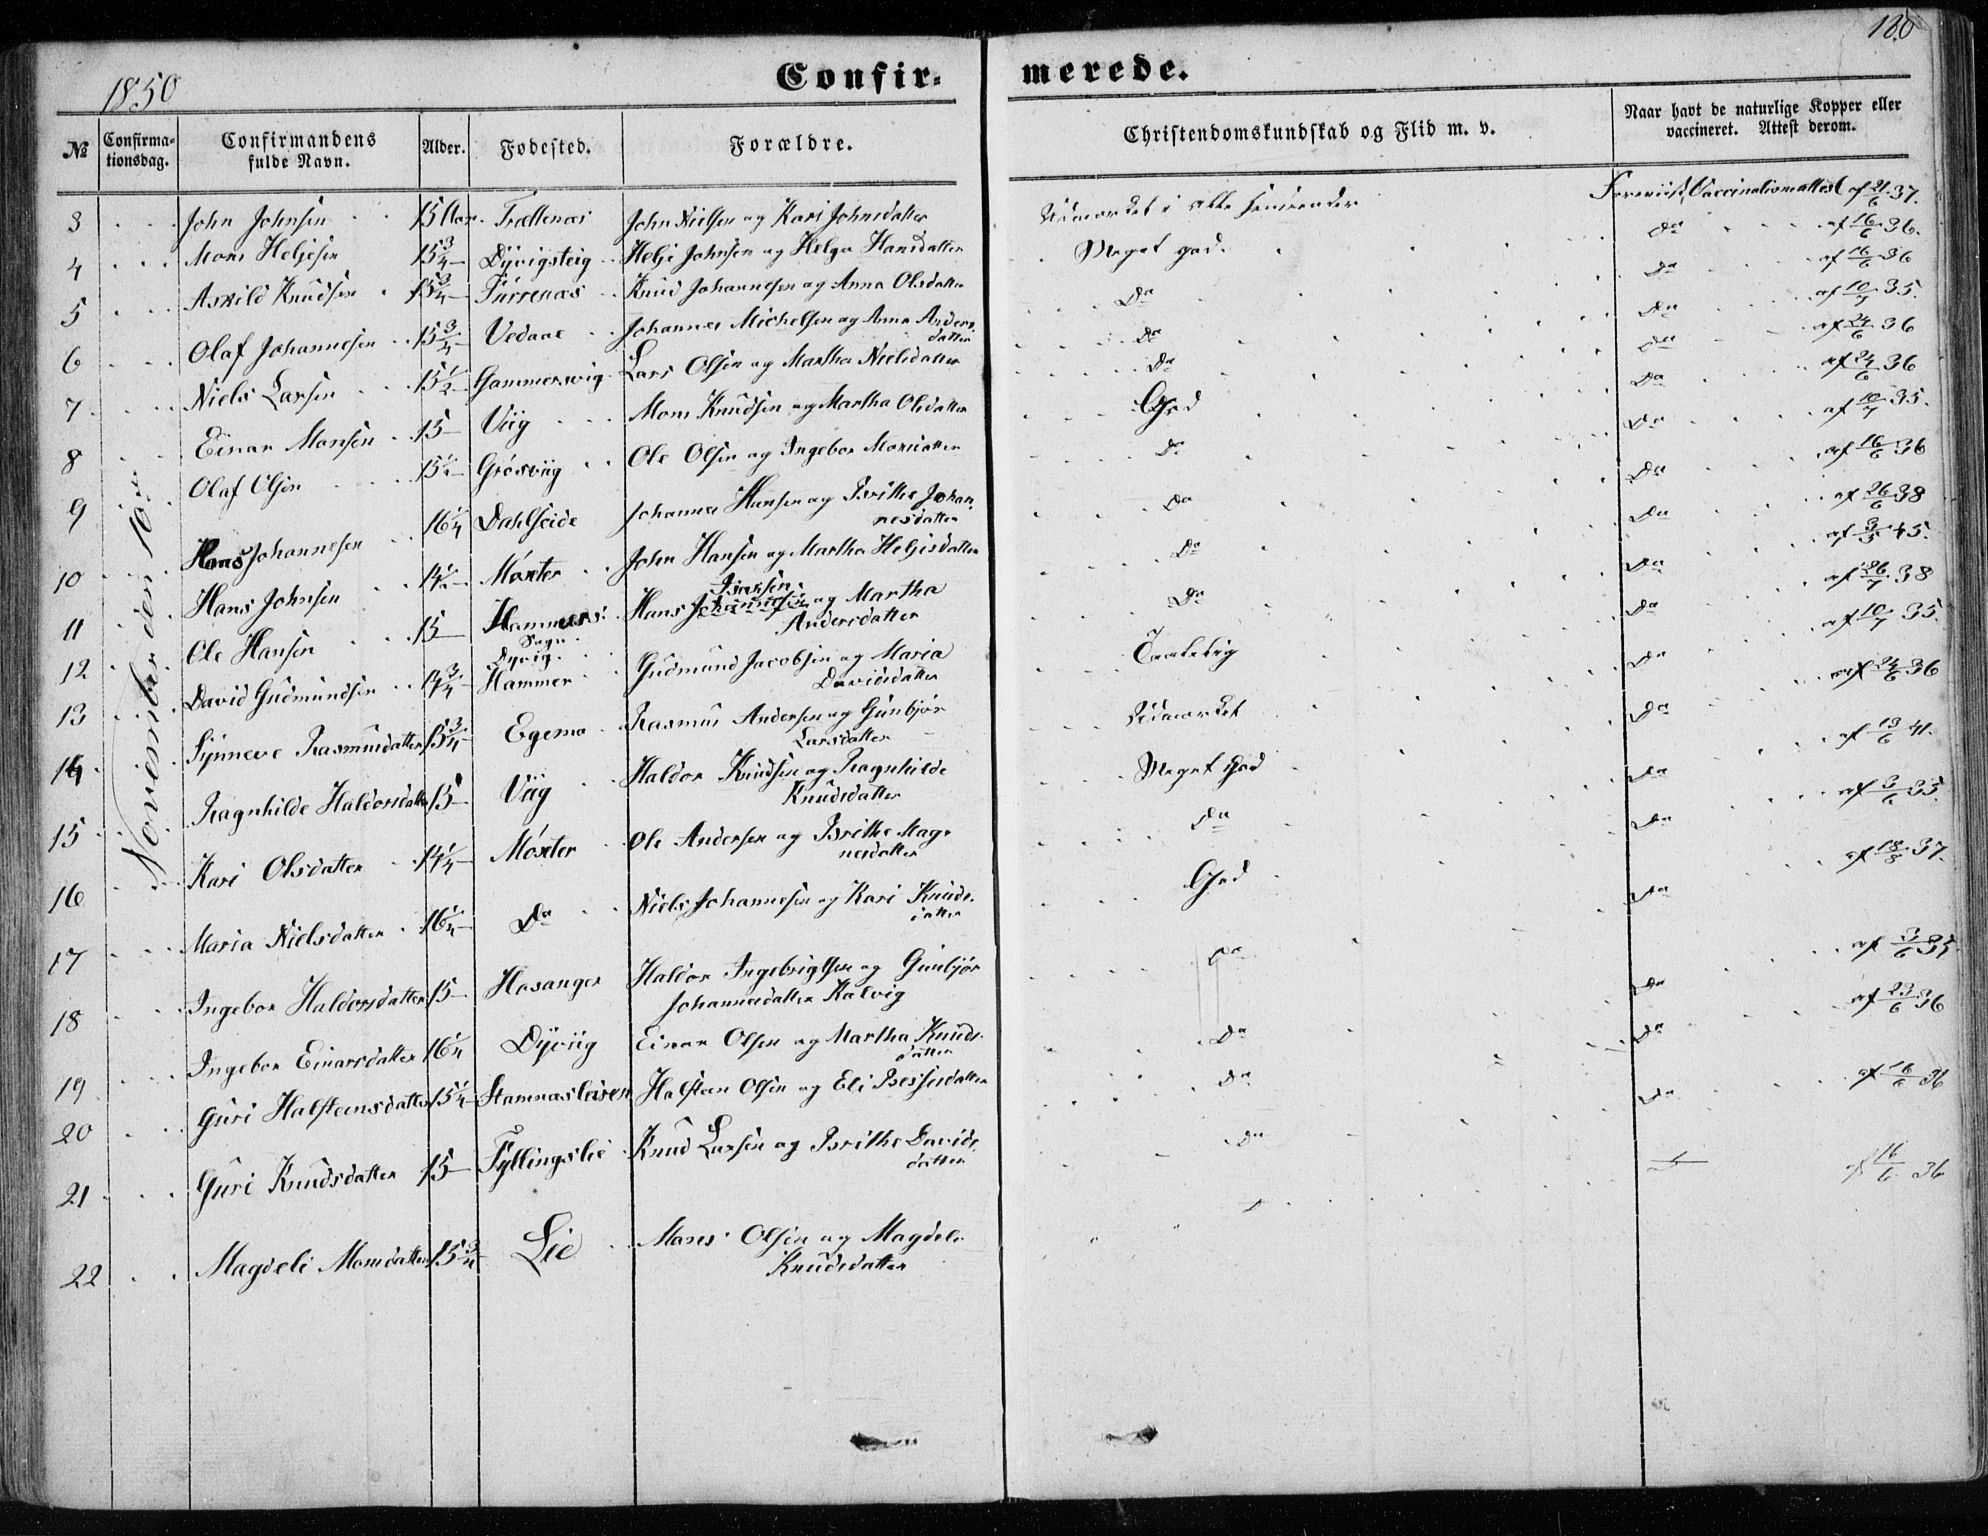 180
1850
Confir- merede.
№ Confirma-tionsdag. Confirmandens fulde Navn. Alder. Fodested. Forældre. Christendomskundskab og Flid m. v. Naar havt de naturlige Kopper eller vaccineret. Attest derom.
November den 10
3 John Johnsen 15 Aar Trættenæs John Nielsen og Kari Johnsdatter Udmærket i alle Vaccinationsattest af 21/6 37.
4 Mons Heljesen 15 3/4 Dyvigsteig Helje Johnsen og Helga Hansdatter Meget god. Do af 16/6 36.
5 Askild Knudsen 15 3/4 Turrenæs Knud Johannesen og Anna Olsdatter Do Do af 16/6 36
6 Olaf Johannesen 15 3/4 Vedaae Johannes Michelsen og Anna Anders-
datter Do Do af 10/7 35.
7 Niels Larsen 15 1/2 Gammersvig Lars Olsen og Martha Nielsdatter Do Do af 24/6 36
8 Einar Monsen 15 Viig Mons Knudsen og Martha Olsdatter God Do af 24/6 36
9 Olaf Olsen 15 1/2 Grøsviig Ole Olsen og Ingebor Monsdatter Do Do af 10/7 35.
10 Hans Johannesen 16 1/4 Dahlseide Johannes Hansen og Brithe Johan-
nesdatter Do Do af 16/6 36
11 Hans Johnsen 14 1/2 Møxter John Hansen og Martha Heljesdatter Do Do af 26/6 38
12 Ole Hansen 15 Hammers Sogn Hans og Martha
Andersdatter Do Do af 3/5 45.
13 David Gudmundsen 14 3/4 Dyvig. Hammer Gudmund Jacobsen og Maria
Davidsdatter Taalelig Do af 26/7 38
14 Synneve Rasmusdatter 15 3/4 Egemo Rasmus Andersen og Gunbjør
Larsdatter Udmærket Do af 10/7 35.
15 Ragnhilde Haldorsdatter 15 Viig Haldor Knudsen og Ragnhilde
Knudsdatter Meget God Do af 24/6 36
16 Kari Olsdatter 14 1/4 Møxter Ole Andersen og Brithe Mag-
nesdatter Do Do af 13/6 41.
17 Maria Nielsdatter 16 1/4 Do Niels Johannesen og Kari Knuds-
datter God Do af 3/6 35.
18 Ingebor Haldorsdatter 15 Hosanger Haldor Ingebrigtsen og Gunbjør
Johannesdatter Kalvig Do Do af 18/8 37.
19 Ingebor Einarsdatter 16 1/4 Dyviig Einar Olsen og Martha Knuds-
datter Do Do af 3/6 35
20 Guri Halsteinsdatter 15 1/4 Stamnæsleiren Halsteen Olsen og Eli Bessesdatter Do Do af 23/6 36
21 Guri Knudsdatter 15 Fyllingslie Knud Larsen og Brithe Davids-
datter Do Do af 16/6 36
22 Magdeli Monsdatter 15 3/4 Lie Mons Olsen og Magdeli
Knudsdatter af 16/6 36